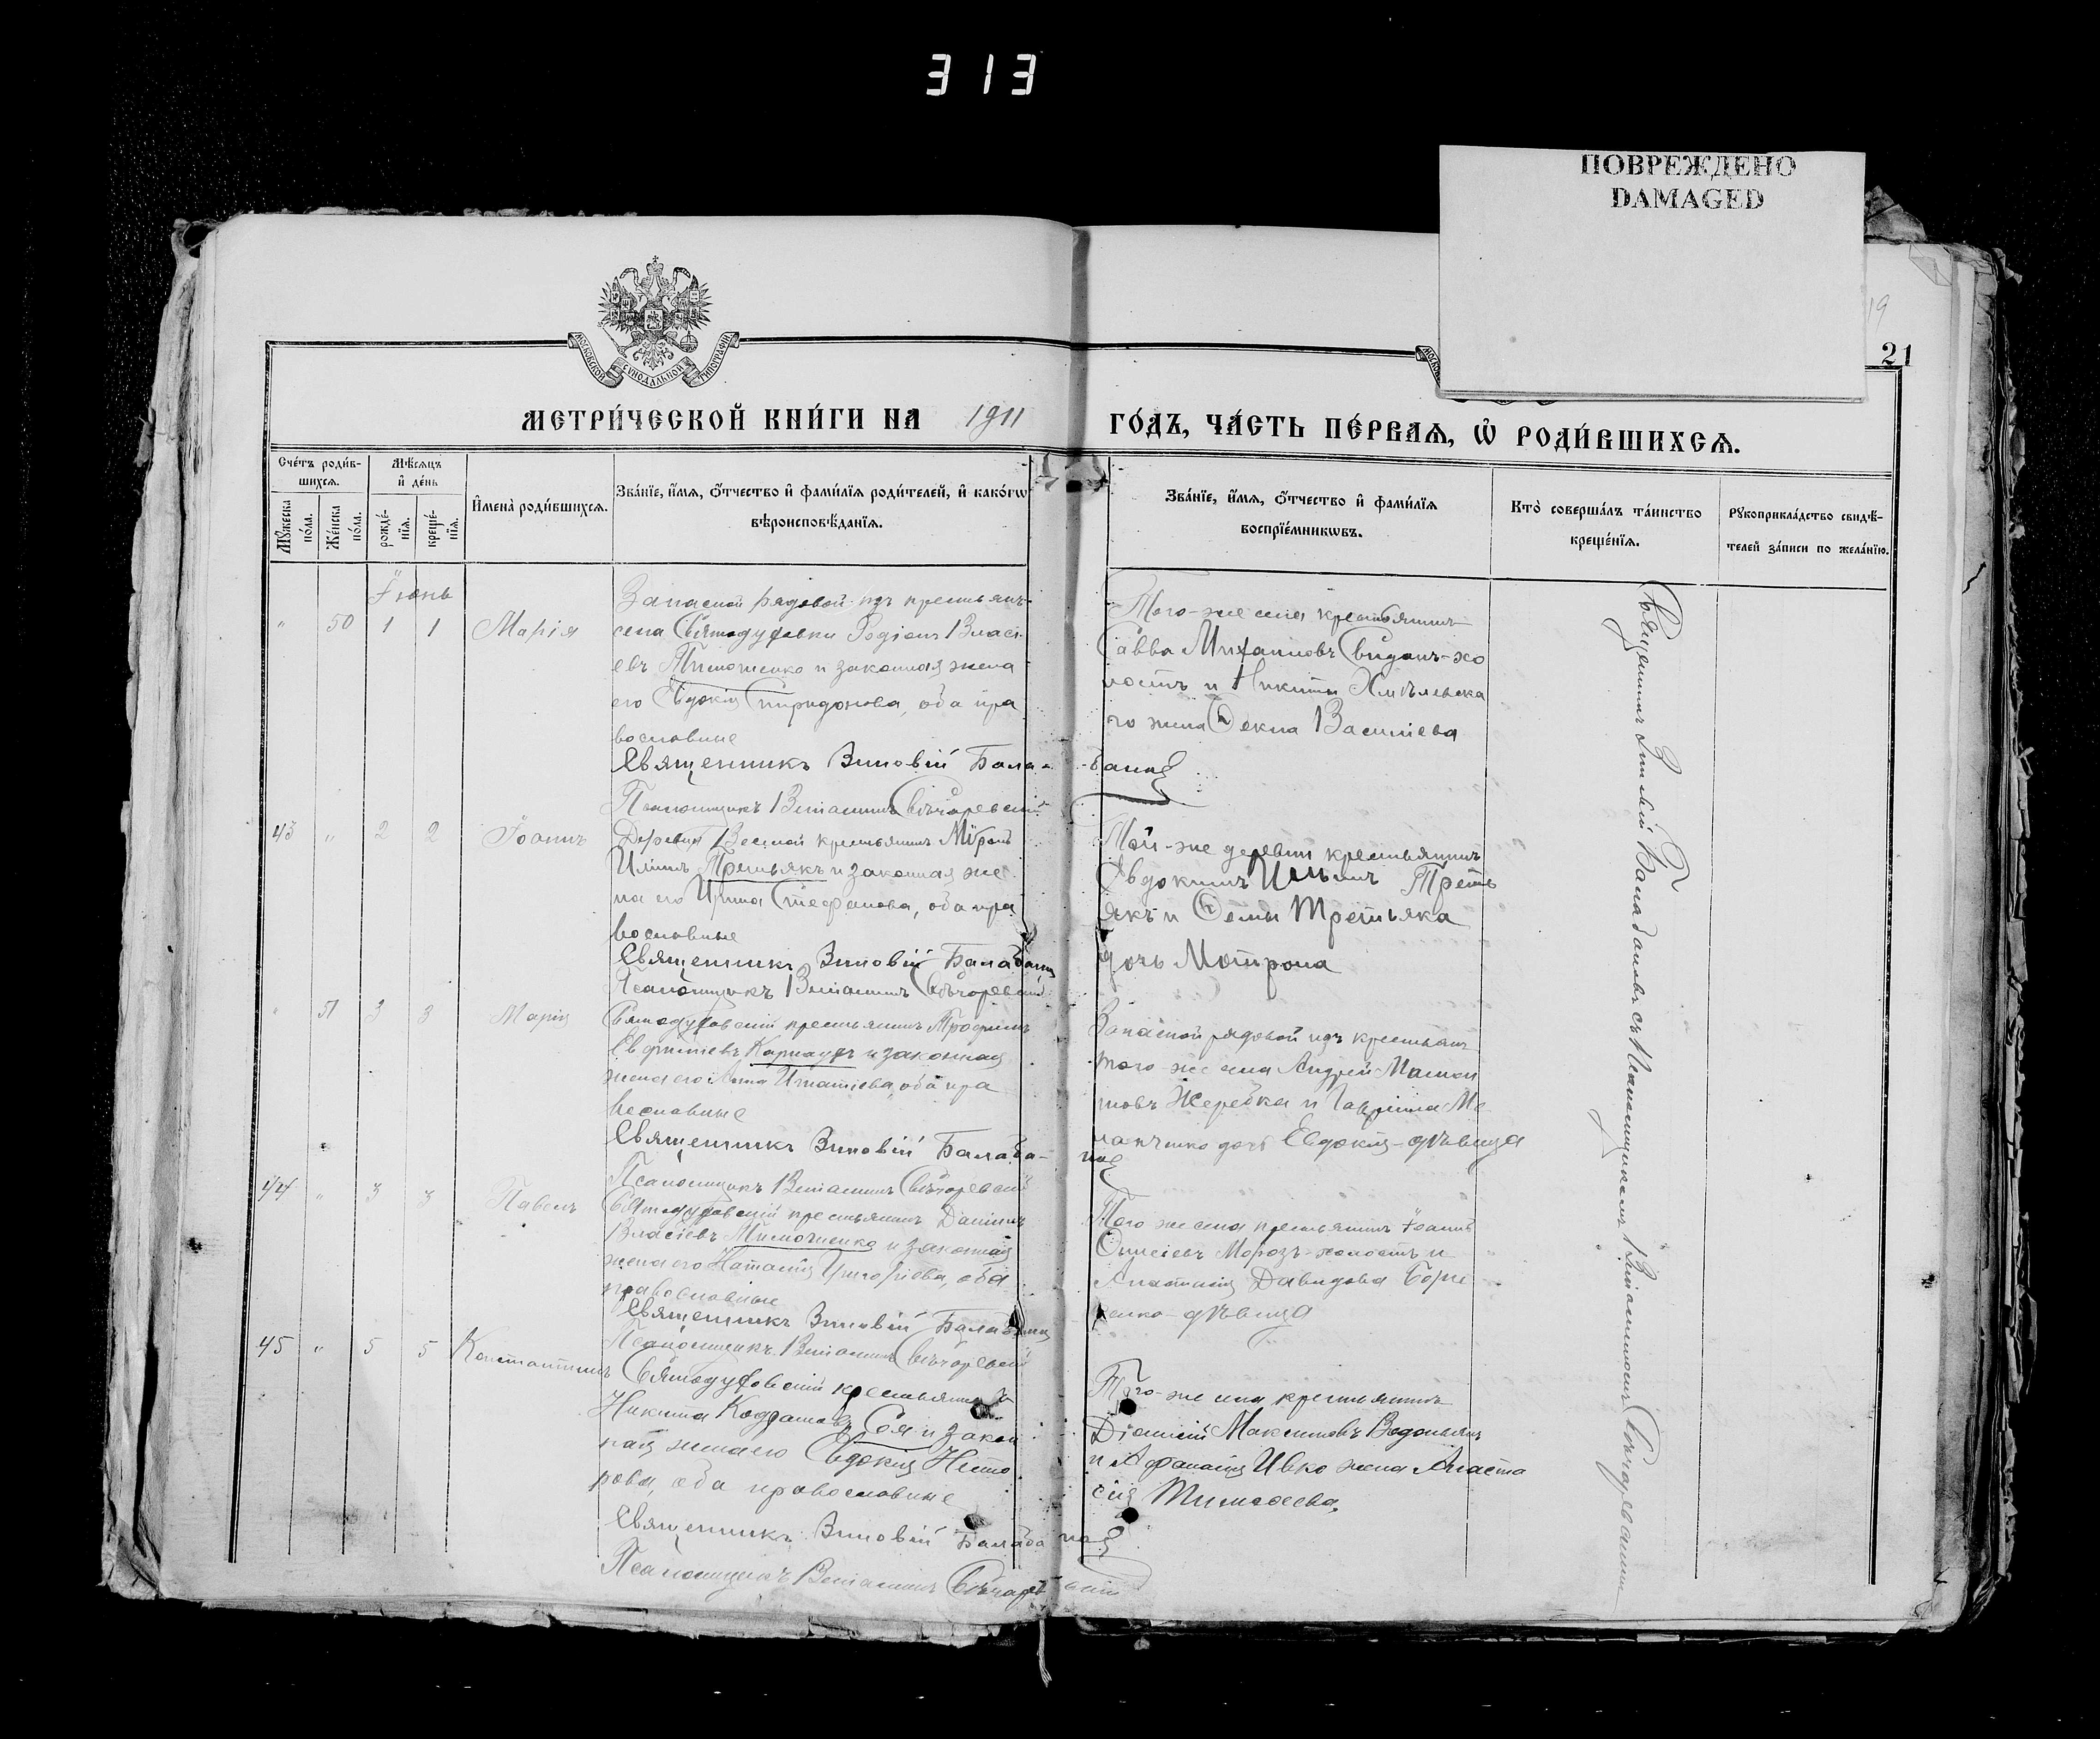 313
ПОВРЕЖДЕНО
DAMAGED
19
21
МОСКОВСКОЙ СѴНОДАЛЬНОЙ ТИПОГРАФІИ
МЕТРИ́ЧЕСКОЙ КНИ́ГИ НА 1911 ГО́ДЪ, ЧА́СТЬ ПЕ́РВАЯ, Ѽ РОДИ́ВШИХСЯ.
Сче́тъ роди́в-
шихся.
Мѣ́сяцъ
и҆ де́нь
Мꙋжеска
по́ла.
Же́нска
по́ла.
рожде́-
нїя.
креще́-
нїя.
И҆мена̀ роди́вшихся.
Зва́нїе, и҆́мя, ѻ҆́тчество и҆ фами́лїя роди́телей, и҆ како́гѡ
вѣроисповѣ́данїя.
Зва́нїе, и҆́мя, ѻ҆́тчество и҆ фами́лїя
воспрїе́мникѡвъ.
Кто̀ соверша́лъ та́инство
креще́нїя.
Рꙋкоприкла́дство свидѣ́-
телей за́писи по жела́нїю.
Іюнь
" 50 1 1 Марія
Запасной рядовой изъ крестьянъ
села Святодуховки Родіонъ Власі-
евъ Тимошенко и законная жена
его Евдокія Спиридонова, оба пра
вославные
Священникъ Зиновій Балабановъ
Псаломщикъ Веніаминъ
Того-же села крестьянинъ
Савва Михаиловъ Свиданъ-хо
лостъ и Никиты Хмѣльска
го жена Ѳекла Василіева
43 " 2 2 Іоаннъ
Деревни Веселой крестьянинъ Мѵронъ
Ильинъ Третьякъ и законная же
на его Ирина Стефанова, оба пра
вославные
Священникъ Зиновій Балабановъ
Псаломщикъ Веніаминъ
Той-же деревни крестьянинъ
Евдокимъ Ильинъ Треть
якъ и Ѳемы Третьяка
дочь Мотрона
" 51 3 3 Марія
Святодуховскій крестьянинъ Трофимъ
Евфиміевъ Карнаухъ и законная
жена его Анна Игнатіева, оба пра
вославные
Священникъ Зиновій Балаба-
новъ
Псаломщикъ Веніаминъ
Запасной рядовой изъ крестьянъ
того-же села Андрей
Жеребка и Гавріила Ме
дочь Евдокія-дѣвица
44 " 3 3 Павелъ
Святодуховскій крестьянинъ Даніилъ
Власіевъ Тимошенко и законная
жена его Наталія Григоріева, оба
православные
Священникъ Зиновій Балабановъ
Псаломщикъ Веніаминъ
Того же села крестьянинъ Іоаннъ
Морозъ-холостъ и
Анастасія Давидова Бори
сенко-дѣвица
45 " 5 5 Константинъ
Святодуховскій крестьянинъ
Никита Кодратовъ Соя и закон
ная жена его Евдокія Несто
рова, оба православные
Священникъ Зиновій Балабановъ
Псаломщикъ Веніаминъ
Того-же села крестьянинъ
Діонисій Максимовъ
и Афанасія Ивко жена Анаста
сія Тимофеева.
Священникъ Зиновій Балабановъ съ Псаломщикомъ Веніаминомъ